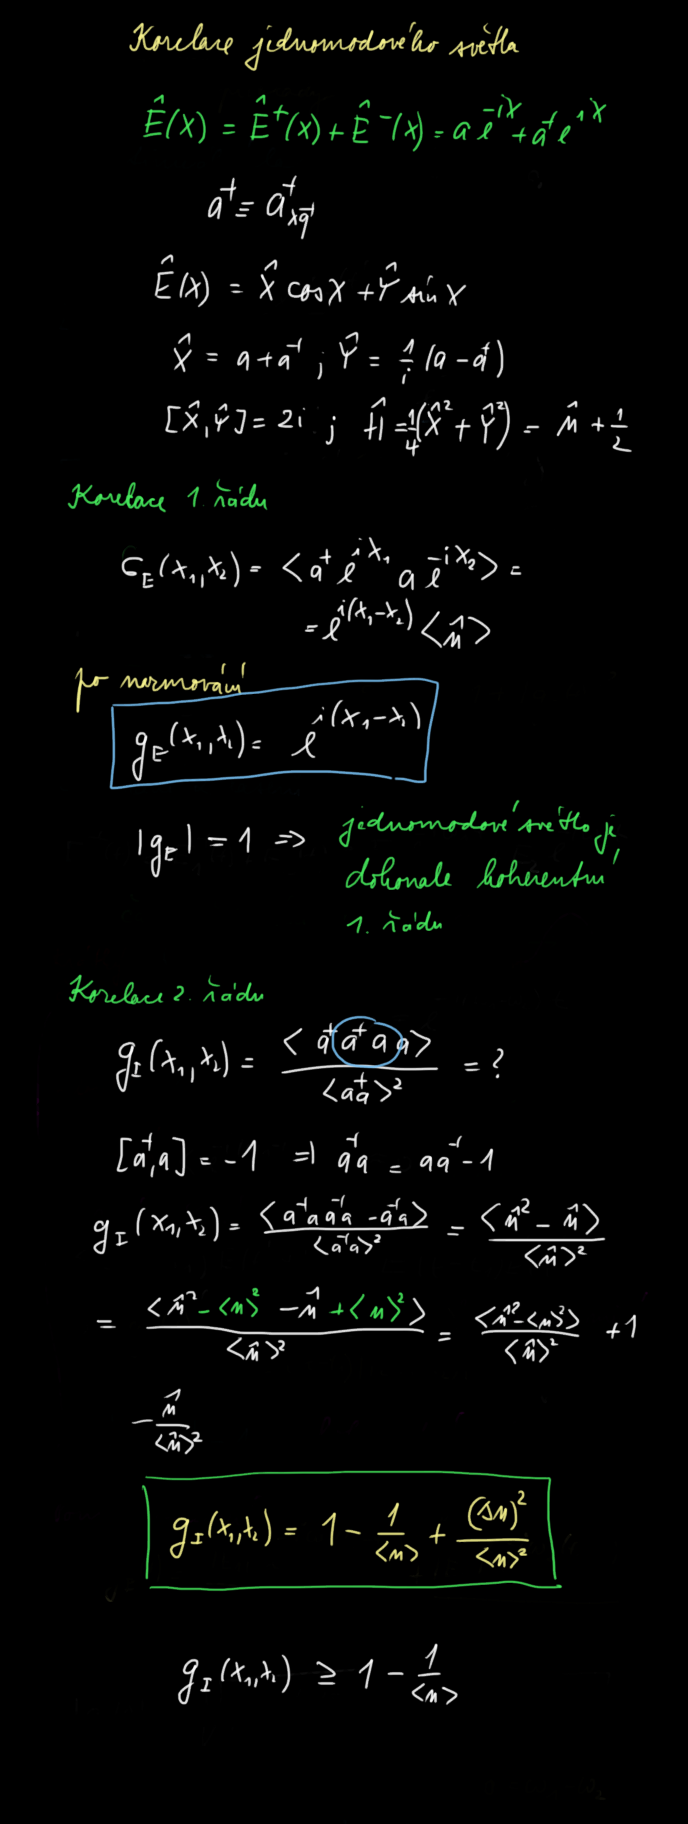 Korelace jednomodového světla
Ê(χ) = Ê⁺(χ) + Ê⁻(χ) = a e^{-iχ} + a† e^{iχ}
a† ≡ a†_{xq}
Ê(χ) = X̂ cos χ + Ŷ sin χ
X̂ = a + a† ; Ŷ = 1/i (a - a†)
[X̂, Ŷ] = 2i ; Ĥ = 1/4 (X̂² + Ŷ²) = n̂ + 1/2
Korelace 1. řádu
G_E(χ₁, χ₂) = <a† e^{iχ₁} a e^{-iχ₂}> =
= e^{i(χ₁-χ₂)} <n̂>
po normování
g_E(χ₁, χ₂) = e^{i(χ₁-χ₂)}
|g_E| = 1 ⇒ jednomodové světlo je
dokonale koherentní
1. řádu
Korelace 2. řádu
g_I(χ₁, χ₂) = <a† a† a a> / <a†a>² = ?
[a†, a] = -1 ⇒ a†a = aa† - 1
g_I(χ₁, χ₂) = <a†a a†a - a†a> / <a†a>² = <n̂² - n̂> / <n̂>²
= <n̂² - <n>² - n̂ + <n>²> / <n̂>² = <n̂² - <n>²> / <n̂>² + 1
- n̂ / <n̂>²
g_I(χ₁, χ₂) = 1 - 1/<n> + (Δn)²/<n>²
g_I(χ₁, χ₂) ≥ 1 - 1/<n>